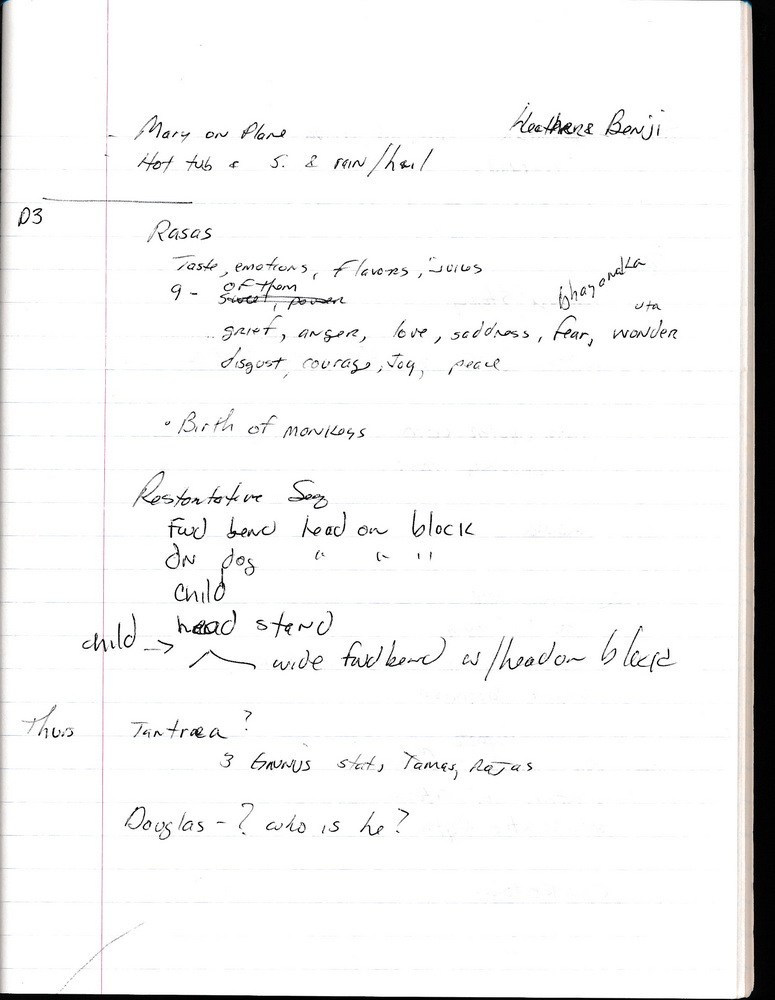 - Mary on Plane
Heather & Benji
- Hot tub & S. & rain/hail
D3
Rasas
Taste, emotions, flavors, juices
9 - of them
sweet, power
bhayanaka
uta
grief, anger, love, saddness, fear, wonder
disgust, courage, Joy, peace
• Birth of monkeys
Restortative Seq
Fwd bend head on block
dn dog " " "
child
head stand
child →
wide fwd bend w/head on block
Thurs Tantra ?
3 Gunus Tamas, Rajas
Douglas - ? who is he?